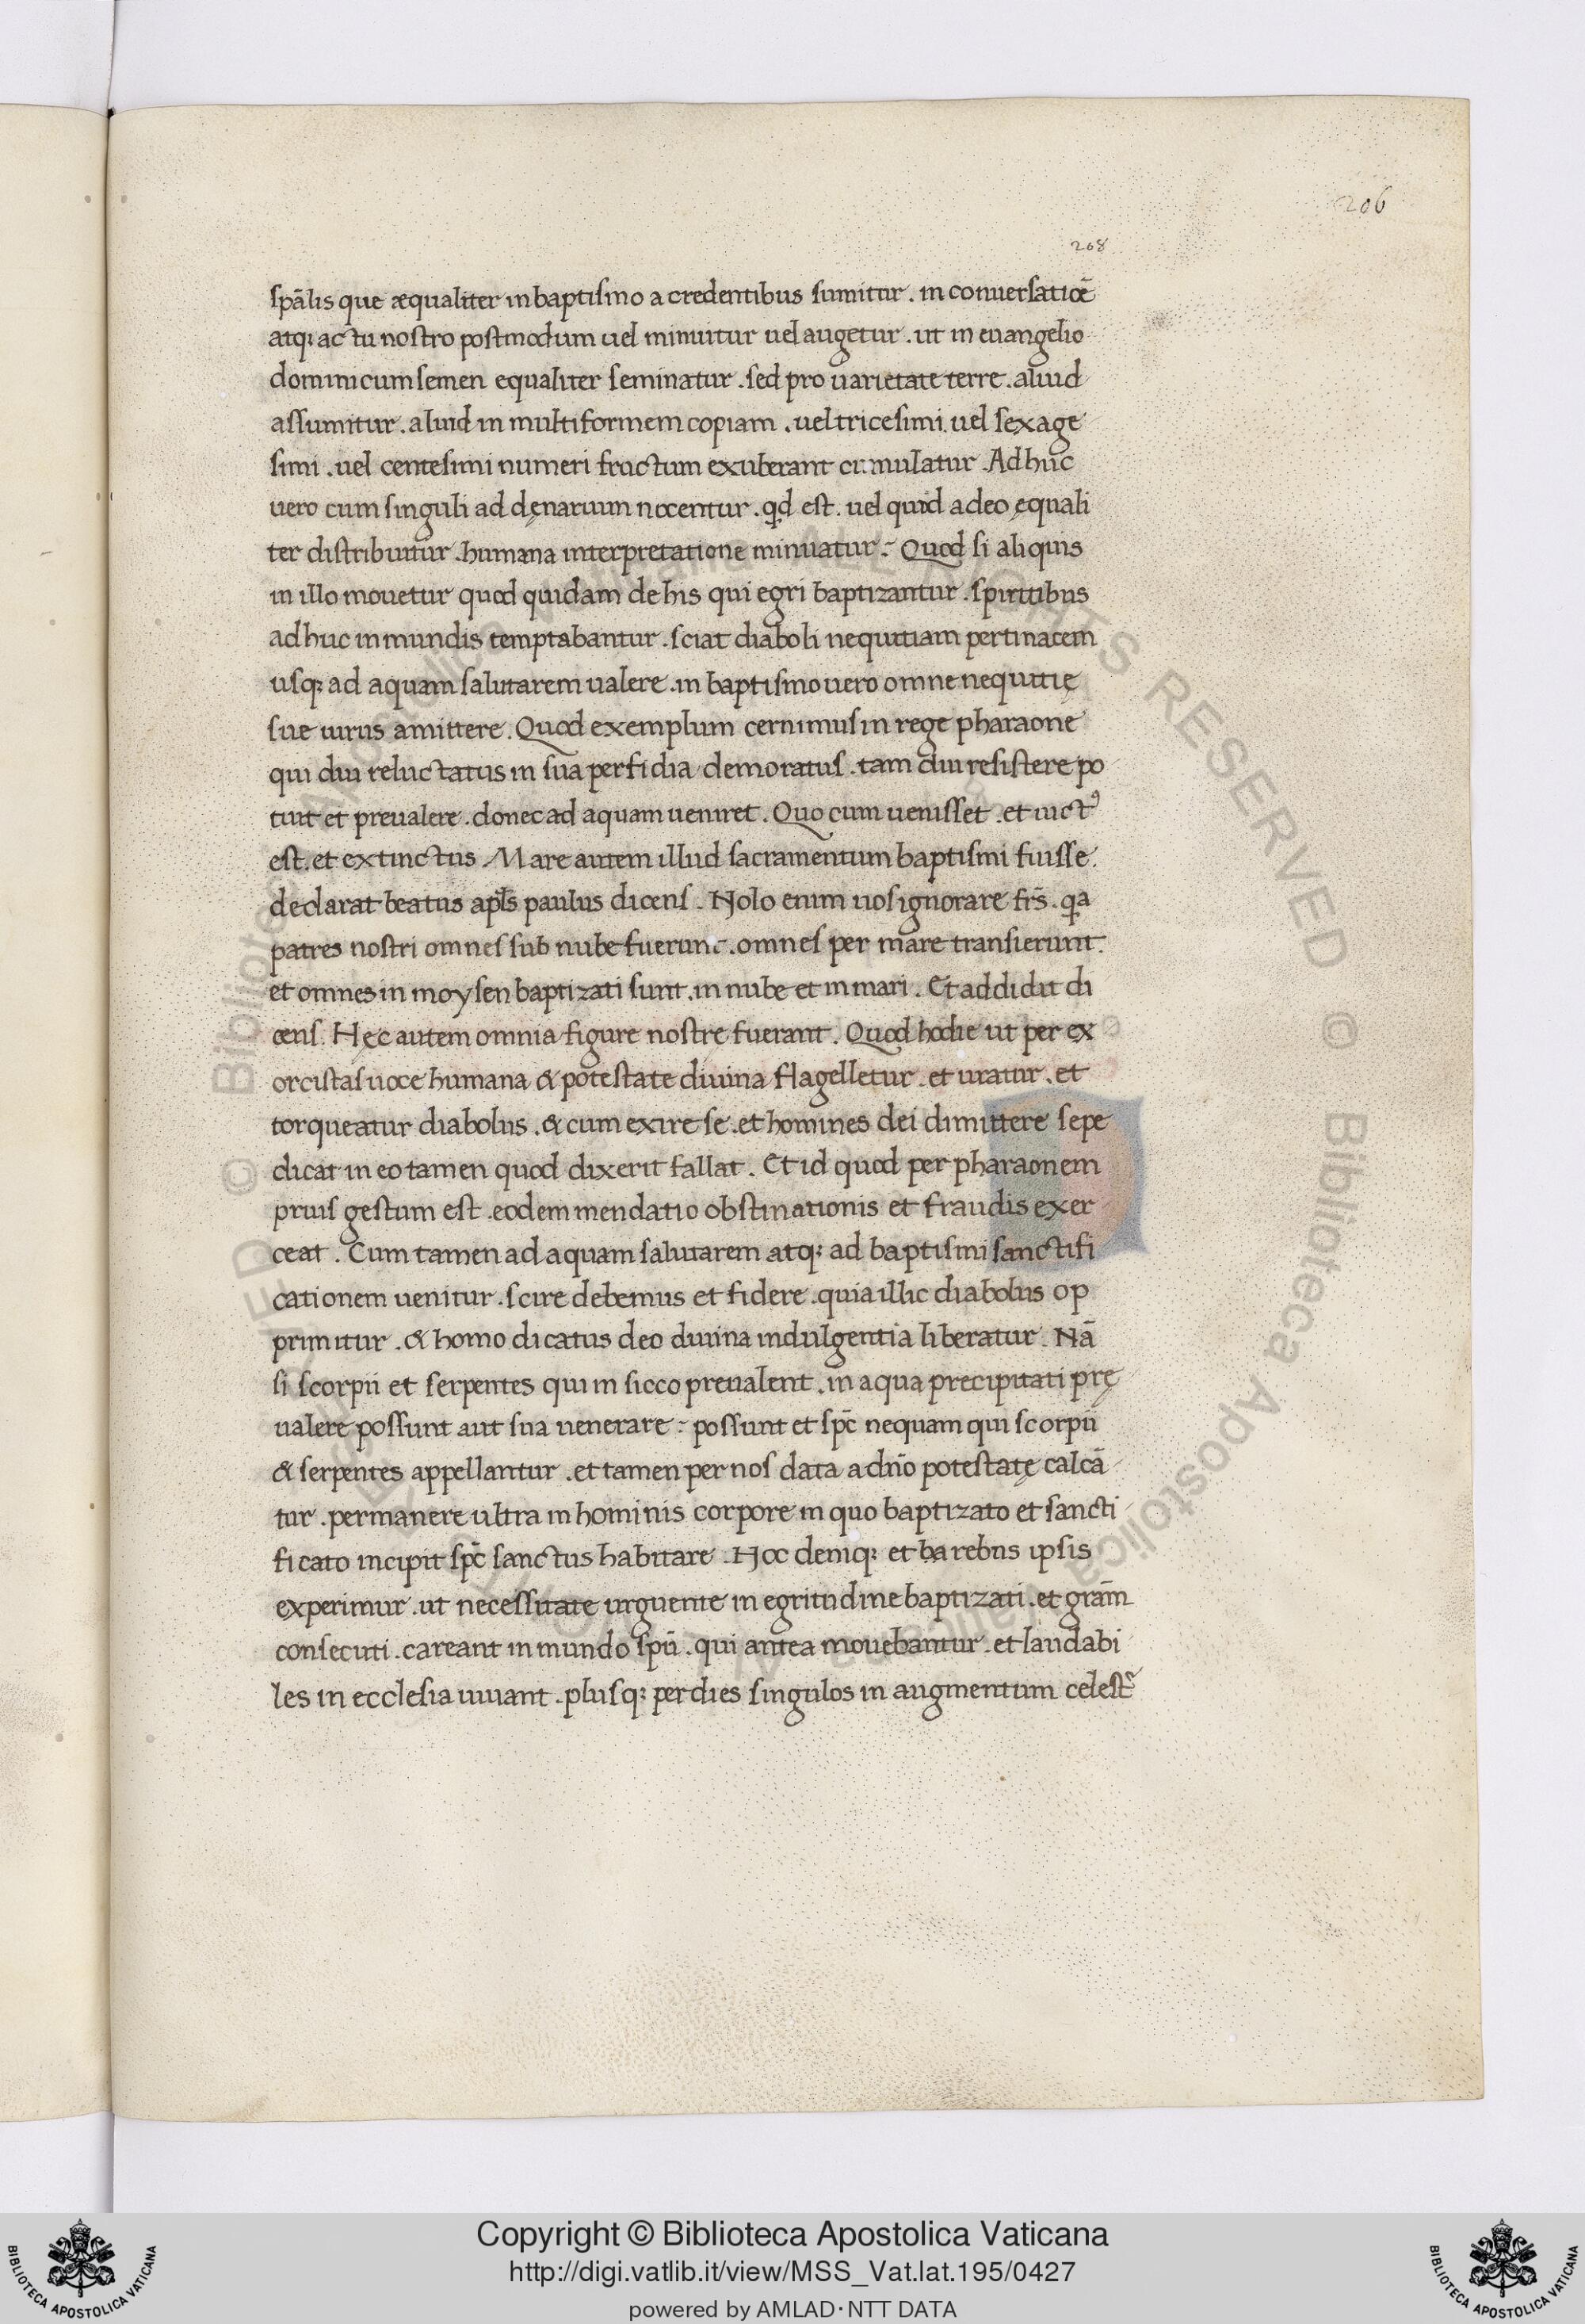 206
208
spãlis que æqualiter in baptismo a credentibus sumitur . in conuersatiõe
atq; actu nostro postmodum uel minuitur uel augetur . ut in euangelio
dominicum semen equaliter seminatur . sed pro uarietate terre . aliud
assumitur . aliud in multiformem copiam . uel tricesimi . uel sexage
simi . uel centesimi numeri fructum exuberant cumulatur . Adhuc
uero cum singuli ad dęnarium nocentur . qd est . uel quid adeo ęquali
ter distribuitur . humana interpretatione minuatur . Quod si aliquis
in illo mouetur quod quidam de his qui egri baptizantur . spiritibus
adhuc inmundis temptabantur . sciat diaboli nequitiam pertinacem
usq; ad aquam salutarem ualere . in baptismo uero omne nequitię
sue uirus amittere . Quod exemplum cernimus in rege pharaone
qui diu reluctatus in sua perfidia demoratus . tam diu resistere po
tuit et preualere . donec ad aquam ueniret . Quo cum uenisset . et uict⁹
est . et extinctus . Mare autem illud sacramentum baptismi fuisse .
declarat beatus apl̃s paulus dicens . Nolo enim uos ignorare fr̃s . qa
patres nostri omnes sub nube fuerunt . omnes per mare transierunt .
et omnes in moysen baptizati sunt . in nube et in mari . Et addidit di
cens . Hęc autem omnia figure nostre fuerant . Quod hodie ut per ex
orcistas uoce humana & potestate diuina flagelletur . et uratur . et
torqueatur diabolus . & cum exire se . et homines dei dimittere sepe
dicat in eo tamen quod dixerit fallat . Et id quod per pharaonem
prius gestum est . eodem mendatio obstinationis et fraudis exer
ceat . Cum tamen ad aquam salutarem atq; ad baptismi sanctifi
cationem uenitur . scire debemus et fidere . quia illic diabolus op
primitur . & homo dicatus deo diuina indulgentia liberatur . Nã
si scorpii et serpentes qui in sicco preualent . in aqua precipitati prę
ualere possunt aut sua uenerare : possunt et sp̃c nequam qui scorpii
& serpentes appellantur . et tamen per nos data a dño potestatę calcã
tur . permanere ultra in hominis corpore in quo baptizato et sancti
ficato incipit sp̃c sanctus habitare . Hoc deniq; et ba rebus ipsis
experimur . ut necessitate urguente in egritudine baptizati . et gram̃
consecuti . careant inmundo spũ . qui antea mouebantur . et laudabi
les in ecclesia uiuant . plusq; per dies singulos in augmentum celest
Copyright © Biblioteca Apostolica Vaticana
http://digi.vatlib.it/view/MSS_Vat.lat.195/0427
powered by AMLAD·NTT DATA